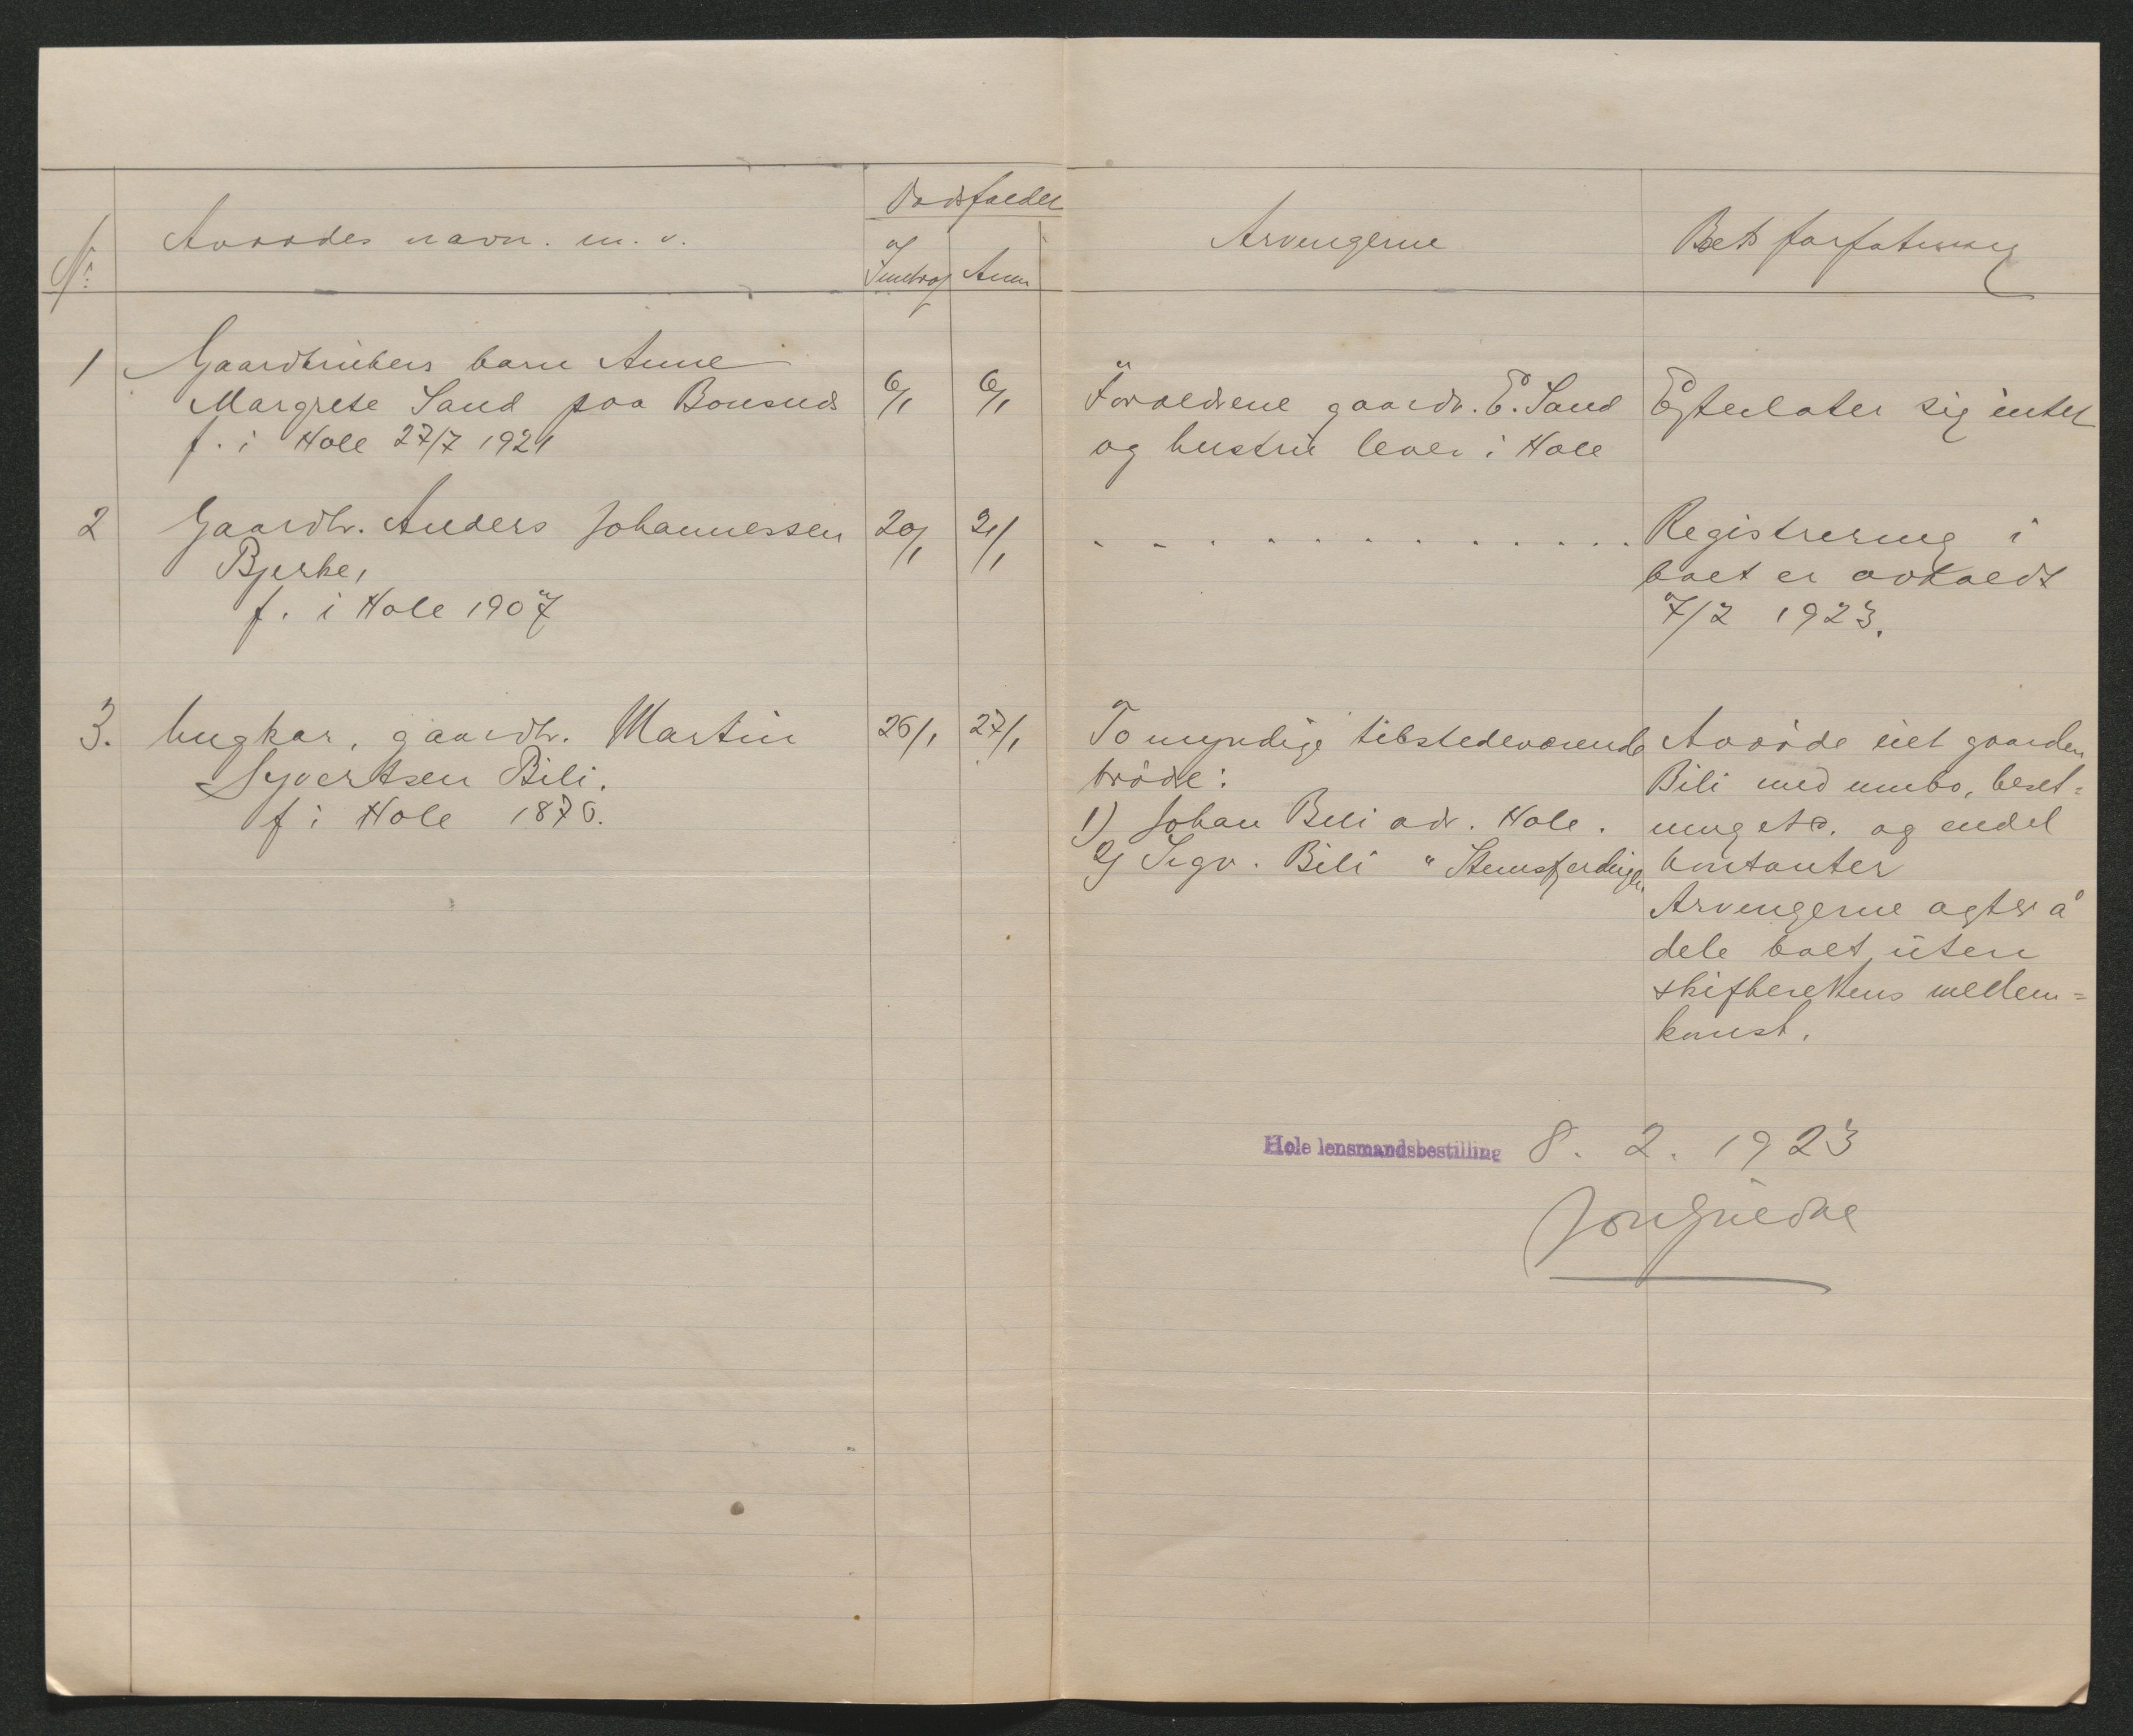 No:
Avdødes navn. m. v.
Dødsfaldet
Indtraf
Anm
Arvingerne
Boets forfatning
1 Gaardbrukers barn Anne
Margrete Sand paa Bonsnes
f. i Hole 27/7 1921
6/1 6/1
Forældrene gaardbr. E. Sand
og hustru lever i Hole
Efterlater sig intet
2 Gaardbr. Anders Johannessen
Bjerke,
f. i Hole 1907
20/1 21/1
. . . . . . . . . . . . .
Registrering i
boet er avholdt
7/2 1923.
3. Ungkar, gaardbr. Martin
Syvertsen Bili.
f i Hole 1876.
26/1 27/1
To myndige tilstedeværende
brødre:
1) Johan Bili adr. Hole.
2) Sigv. Bili "
Avdøde eiet gaarden
Bili med innbo, beset=
ning etc. og endel
kontanter
Arvingerne agter å
dele boet uten
skifterettens mellem=
komst.
Hole lensmandsbestilling 8. 2. 1923